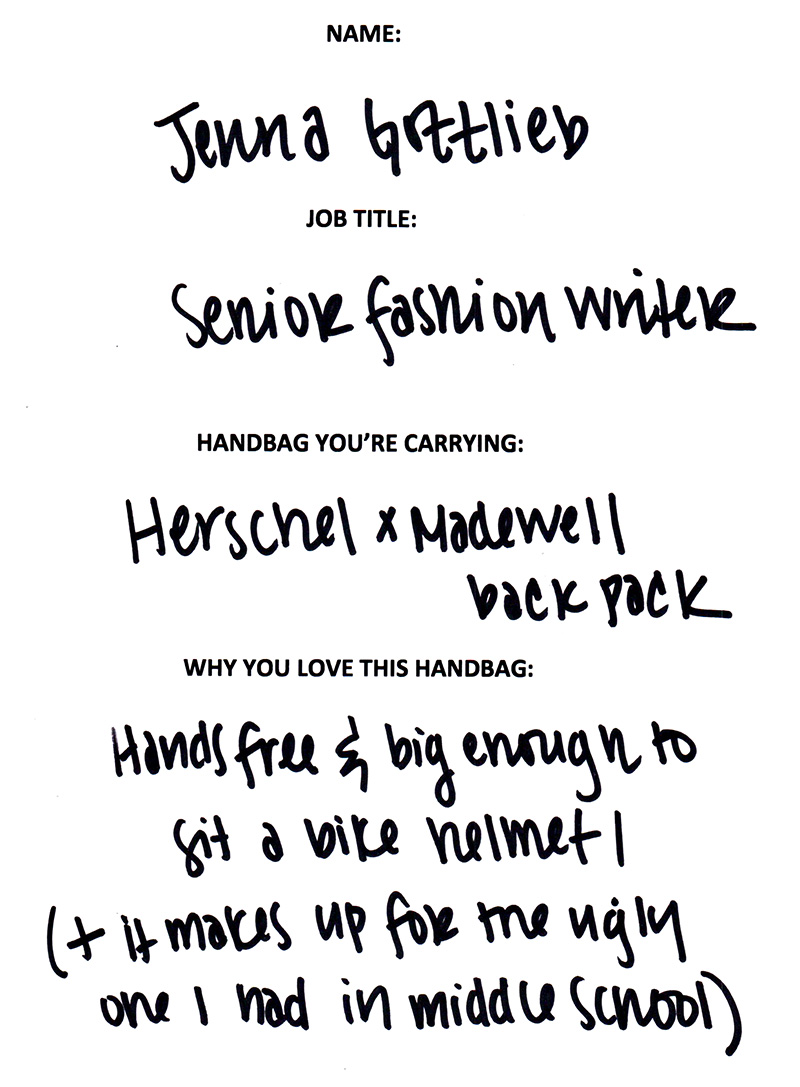 NAME:
Jenna Gottlieb
JOB TITLE:
Senior fashion writer
HANDBAG YOU'RE CARRYING:
Herschel x Madewell
back pack
WHY YOU LOVE THIS HANDBAG:
Hands free & big enough to
fit a bike helmet!
(+ it makes up for the ugly
one I had in middle school)